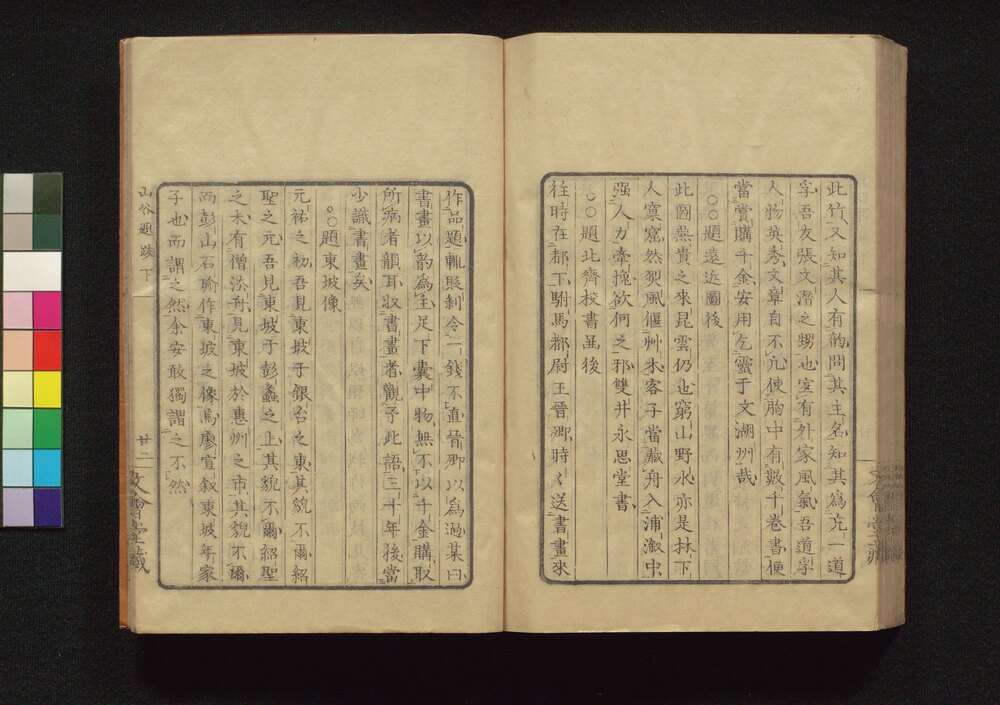 此竹又知其人有韵問其主名知其為克一道
孚吾友張文潛之甥也宜有外家風氣吾道字
人物英秀文章自不凡使胸中有數千卷書便
當賞購千金安用乞靈于文湖州哉
〇〇題遠近圖後
此圖燕貴之來昆雲仍也窮山野水亦是林下
人窠窟然烈風偃艸木客子當藏舟入浦溆中
强人力牽挽欲何之邪雙井永思堂書
〇〇題北齊校書啚後
往時在都下駙馬都尉王晉卿時〻送書畫來
作品題輒貶剥令一錢不直晉卿以為過某曰
書畫以韵為主足下囊中物無不以千金購取
所病者韻耳收書畫者觀予此語三十年後當
少識書畫矣
〇〇題東坡像
元祐之初吾見東坡于銀台之東其貌不爾紹
聖之元吾見東坡于彭蠡之上其貌不爾紹聖
之末有僧法舟見東坡於惠州之市其貌不爾
而彭山石瑜作東坡之像為廖宣叙東坡年家
子也而謂之然余安敢獨謂之不然
山谷題跋 下
廿二
文會堂藏
文會堂藏